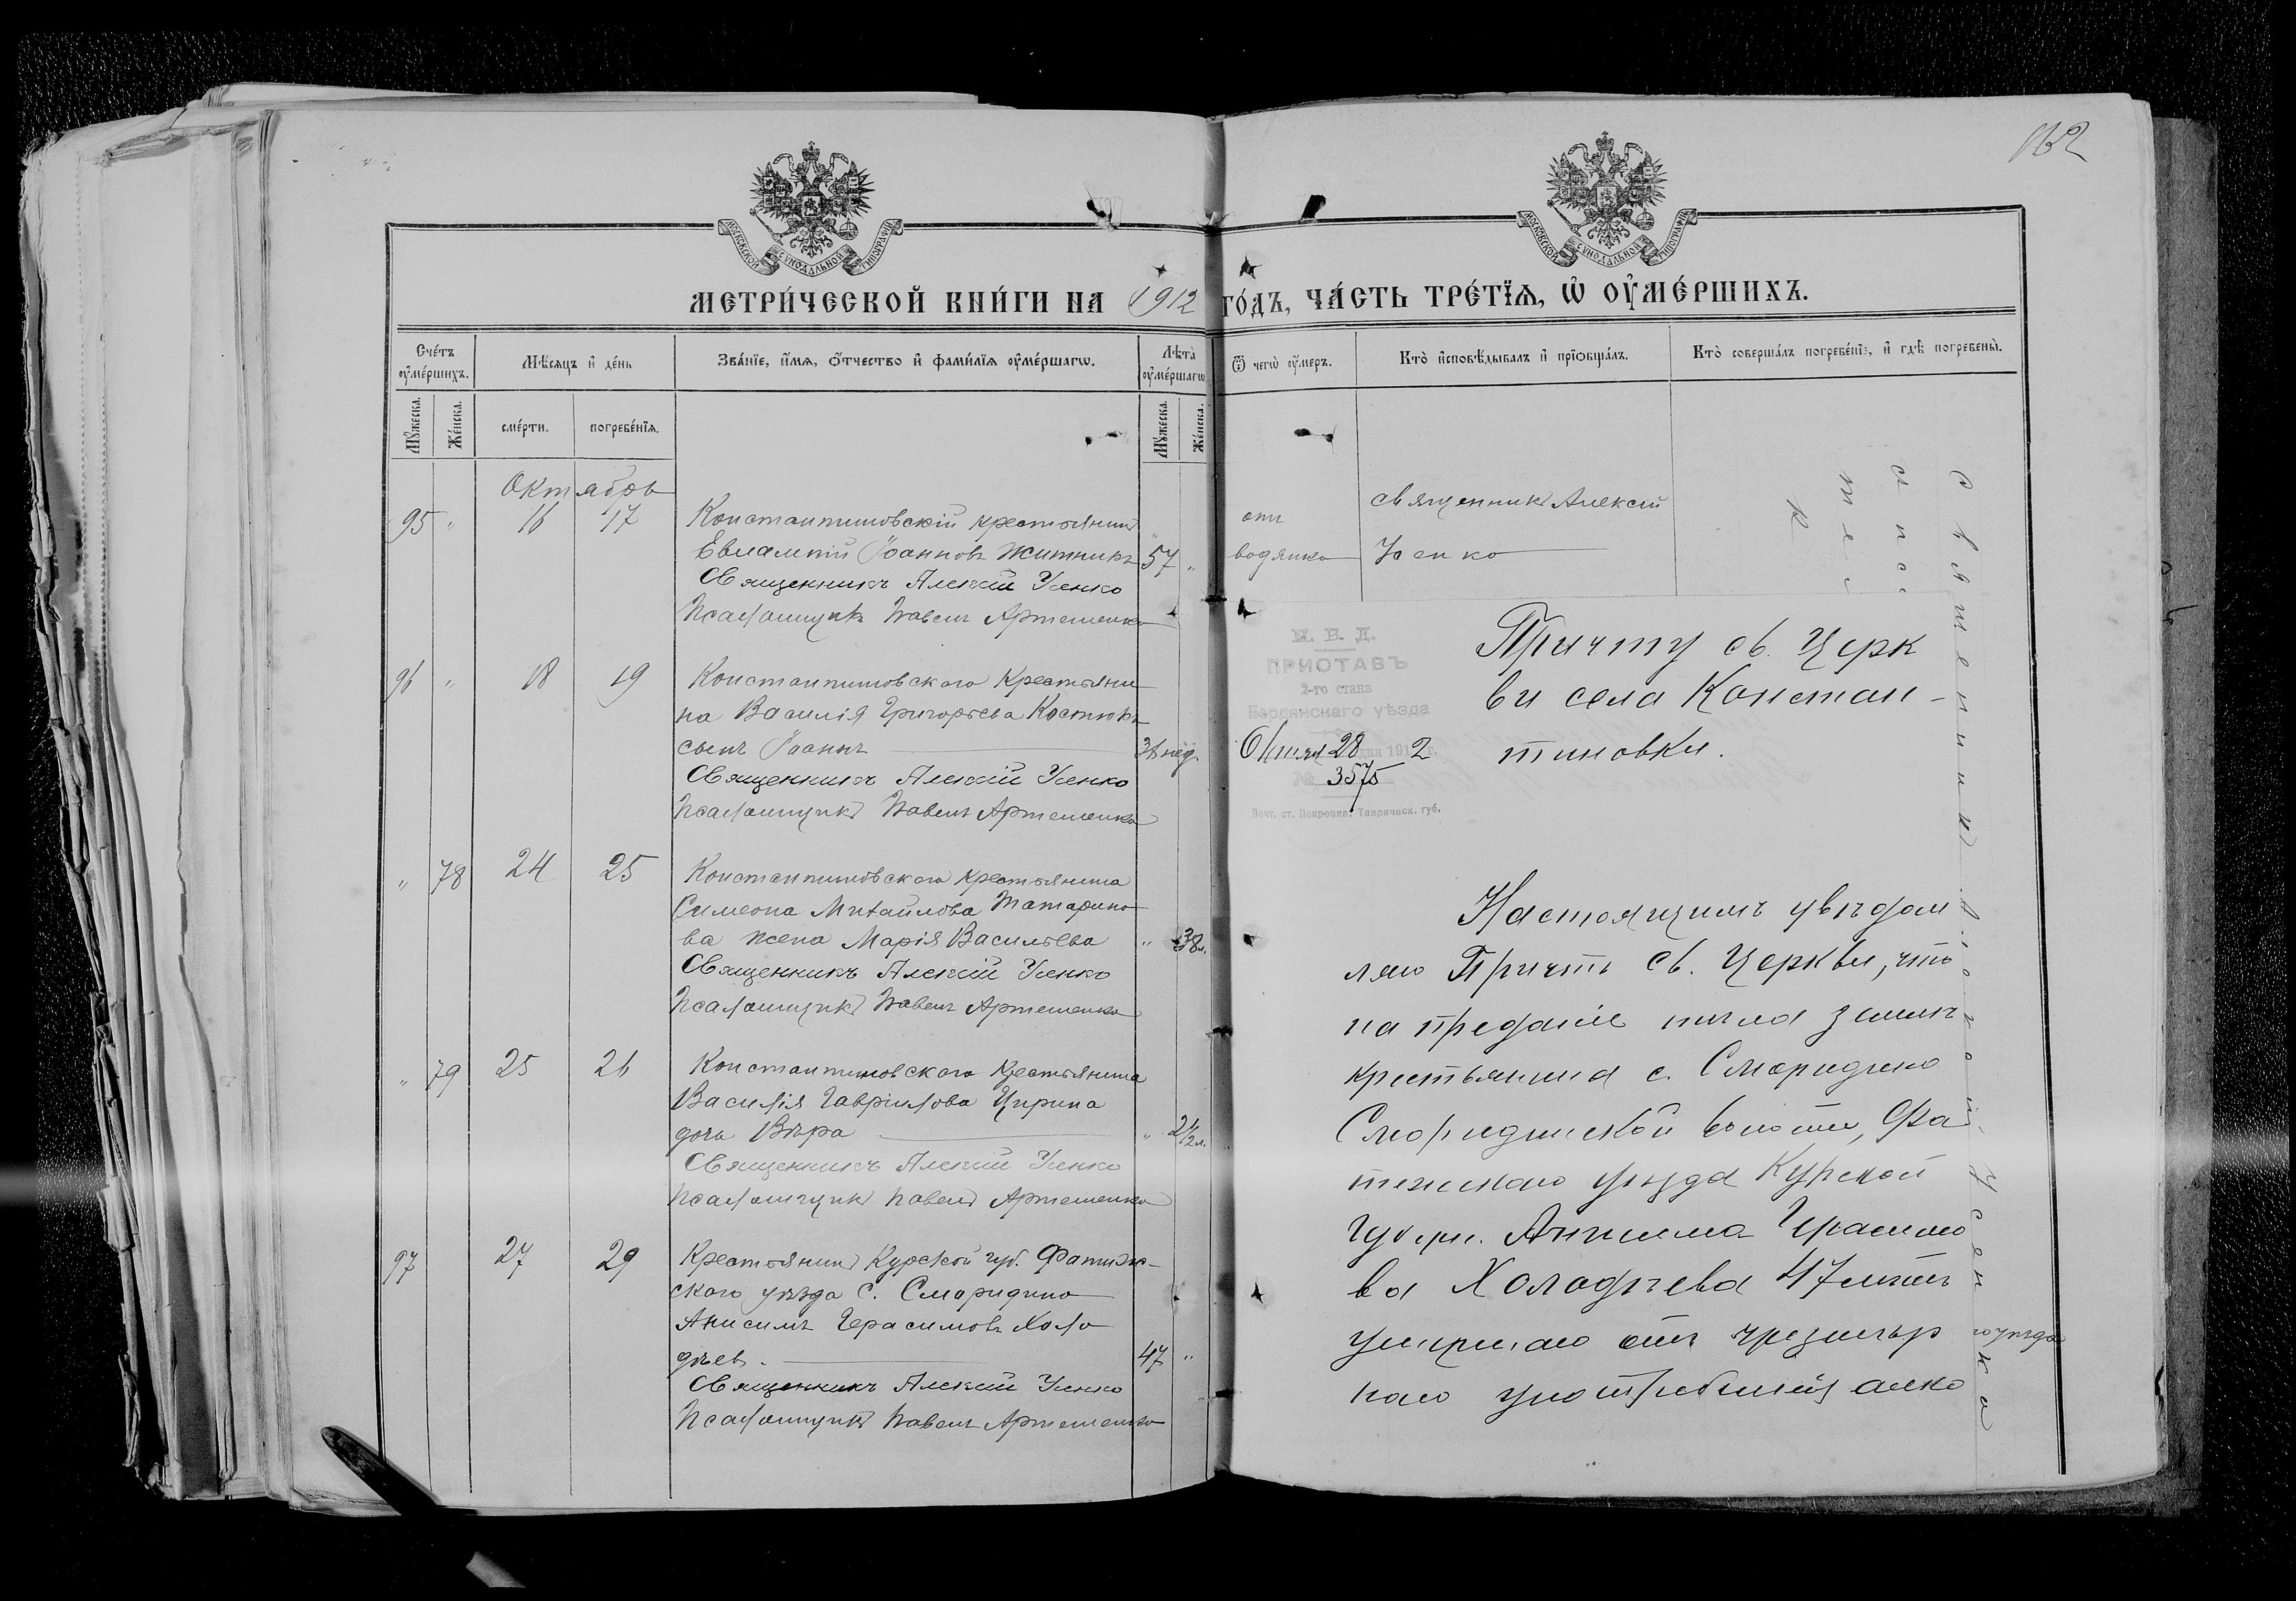 162
МОСКОВСКОЙ СѴНОДАЛЬНОЙ ТИПОГРАФІИ
МОСКОВСКОЙ СѴНОДАЛЬНОЙ ТИПОГРАФІИ
МЕТРИ́ЧЕСКОЙ КНИ́ГИ НА 1912 ГО́ДЪ, ЧА́СТЬ ТРЕ́ТЇѦ, Ѡ ОУ҆МЕ́РШИХЪ.
Сче́тъ оу҆ме́ршихъ.
Мѣ́сяцъ и҆ де́нь
Зва́нїе, и҆́мѧ, ѻ҆́тчество и҆ фами́лїѧ оу҆ме́ршагѡ.
Лѣ́та оу҆ме́ршагѡ
Ѿ чегѡ̀ оу҆́меръ.
Кто̀ и҆сповѣ́дывалъ и҆ прїѡбща́лъ.
Кто̀ соверша́лъ погребе́нїе, и҆ гдѣ̀ погребены̀.
Мꙋ́жеска. Же́нска. сме́рти. погребе́нїѧ. Мꙋ́жеска. Же́нска.
Октябрь
95 " 16 17 Константиновскій крестьянинъ
Евлампій Іоанновъ Житникъ 57 "
Священникъ Алексій Усенко
Псаломщикъ Павелъ Артеменко
96 " 18 19 Константиновскаго крестьяни
на Василія Григорьева Костюкъ
сынъ Іоаннъ нед.
Священникъ Алексій Усенко
Псаломщикъ Павелъ Артеменко
" 78 24 25 Константиновскаго крестьянина
Симеона Михайлова Татарино
ва жена Марія Васильева " 38 л.
Священникъ Алексій Усенко
Псаломщикъ Павелъ Артеменко
" 79 25 26 Константиновскаго крестьянина
Василія Гавріилова Цирина
дочь Вѣра "
Священникъ Алексій Усенко
Псаломщикъ Павелъ Артеменко
97 27 29 Крестьянинъ Курской губ. Фатиж-
скаго уѣзда С. Смородино
Анисимъ Герасимовъ Холо
дѣевъ. 47 "
Священникъ Алексій Усенко
Псаломщикъ Павелъ Артеменко
отъ
водянки
Священникъ Алексій
Усенко
М. В. Д.
ПРИСТАВЪ
2-го стана
Бердянскаго уѣзда
Октяб 28 дня 1912 г.
№ 3575
Почт. ст. Покровка, Таврическ. губ.
Причту св. Церк
ви села Констан-
тиновки.
Настоящимъ увѣдом
ляю Причтъ Св. Церкви, что
на преданіе тѣла землѣ
крестьянина с. Смородино
Смородинской волости, Фа
тижскаго уѣзда Курской
Губерн. Анисима Герасимо
ва Холодѣева 47 лѣтъ
умершаго отъ чрезмѣр
наго употребленія алко
Священникъ Алексій Усенко